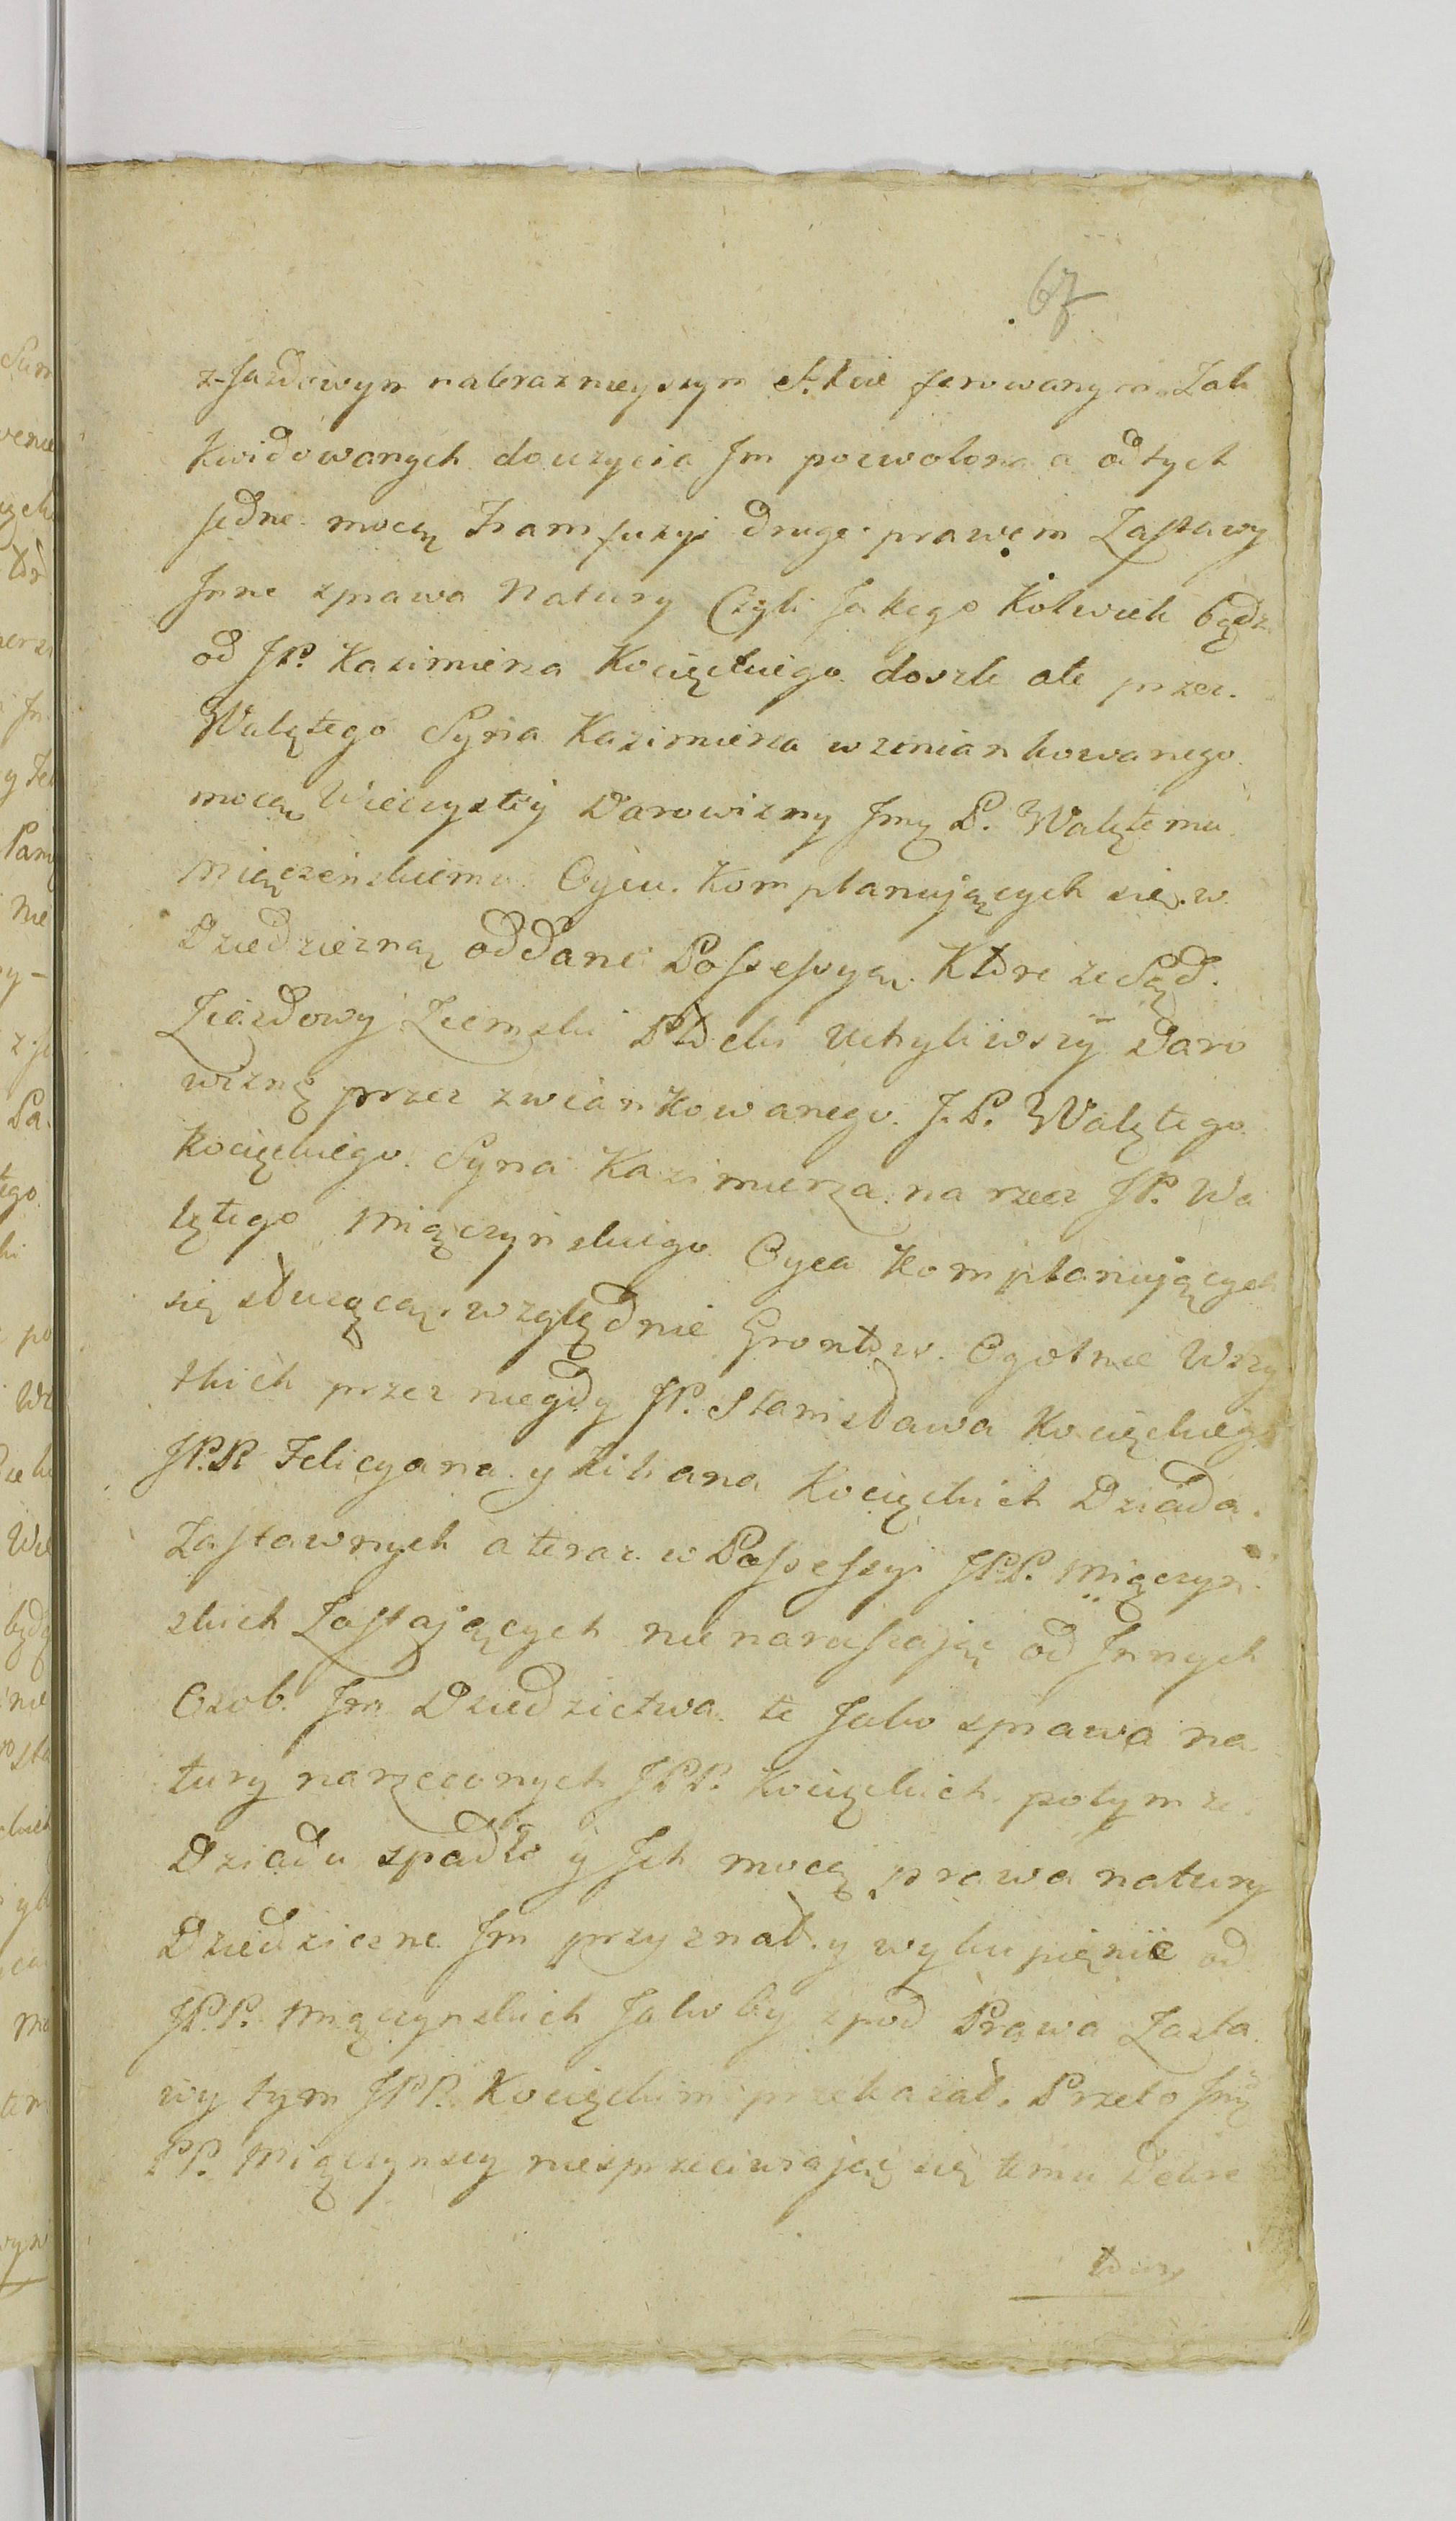 67
z-jazdowym naterazneyszym Akcie ferowanym Zali
kwidowanych do uzycia Jm pozwolona a od tych
jedne mocą Transfuzyi drugе prawem Zastawy
Jnne z prawa Natury Czyli Jakiego Kolwiek bądz
od JP. Kazimierza Kocięckiego doszłe ale przez
Walętego Syna Kazimierza wzmiankowanego
mocą Wieczystey Darowizny Jmę P. Walętemu
Miączeńskiemu Oycu Komplanujących się w
Dziedziczną oddane Possessyą Które ze Sąd
Zjazdowy Ziemski Płocki Uchyliwszy Daro
wiznę przez zwiankowanego J.P. Walętego
Kocięckiego Syna Kazimierza na rzecz JP. Wa
lętego Miączyńskiego Oyca Komplanujących
się służącą względnie Grontów Ogolnie Wszy
stkich przez niegdy JP. Stanisława Kocięckiego
JPP. Felicyana y Kiliana Kocięckich Dziada
Zastawnych a teraz w Possessyi JPP. Miączyń
skich Zostających nienaruszając od Jnnych
Osob Jm Dziedzictwa te Jako z prawa na
tury narzeczonych JPP. Kocięckich potym ze
Dziadu spadło y Jch mocą prawa natury
Dziedziczne Jm przyznał y wykupięnie od
JP.P. Miączynskich Jakoby zpod Prawa Zasta
wy tym JPP. Kocięckim przekazał. Przeto Jmę
PP. Miączynscy niesprzeciwiając się temu Dekre
towy